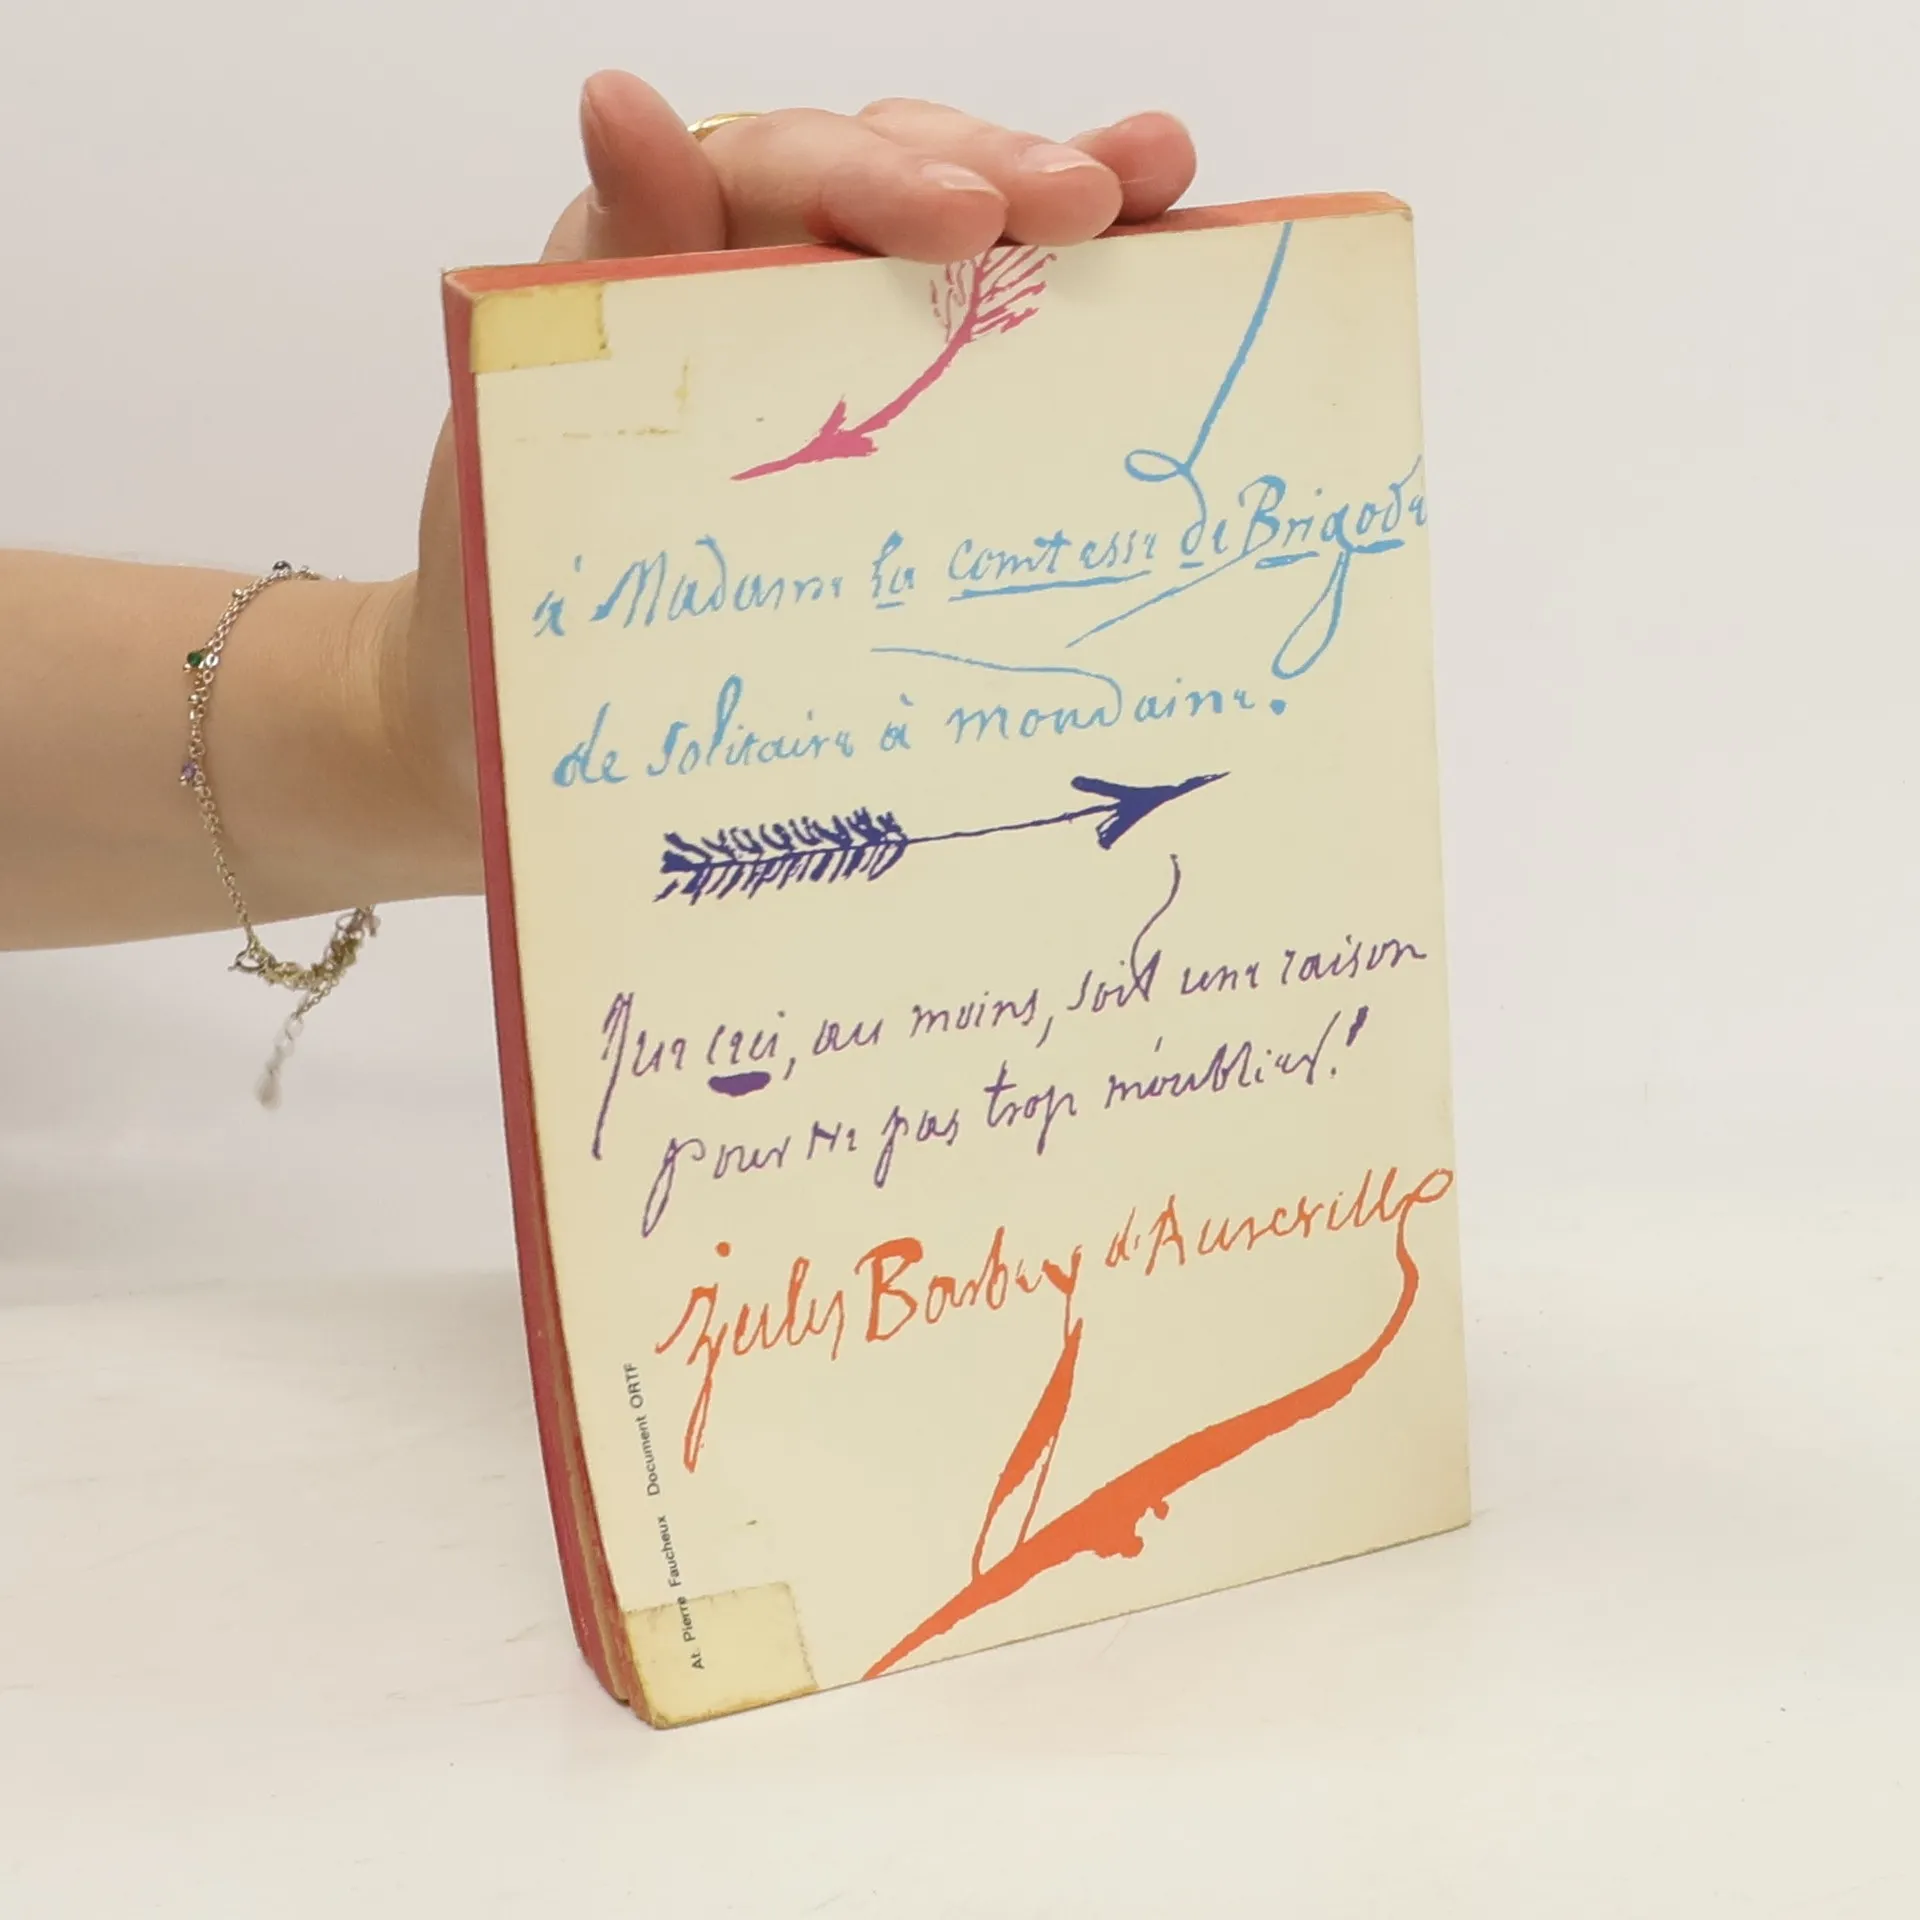 à Madame la comtesse de Brigode
de solitaire à mondaine.
Que ceci, au moins, soit une raison
pour ne pas trop m'oublier!
Jules Barbey d'Aurevilly
At. Pierre Faucheux Document ORTF